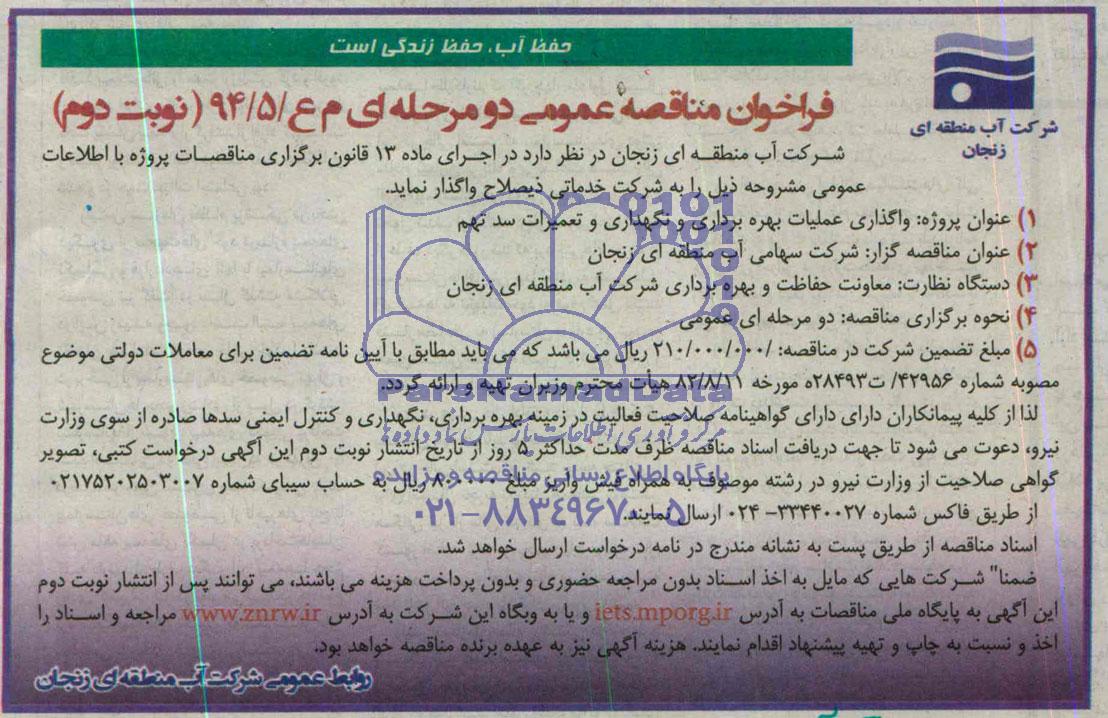 حفظ آب، حفظ زندگی است
شرکت آب منطقه ای
زنجان
فراخوان مناقصه عمومی دو مرحله ای م ع/۹۴/۵ ( نوبت دوم)
شرکت آب منطقه ای زنجان در نظر دارد در اجرای ماده ۱۳ قانون برگزاری مناقصات پروژه با اطلاعات
عمومی مشروحه ذیل را به شرکت خدماتی ذیصلاح واگذار نماید.
۱) عنوان پروژه: واگذاری عملیات بهره برداری و نگهداری و تعمیرات سد تهم
۲) عنوان مناقصه گزار: شرکت سهامی آب منطقه ای زنجان
۳) دستگاه نظارت: معاونت حفاظت و بهره برداری شرکت آب منطقه ای زنجان
۴) نحوه برگزاری مناقصه: دو مرحله ای عمومی
۵) مبلغ تضمین شرکت در مناقصه: /۲۱۰/۰۰۰/۰۰۰ ریال می باشد که می باید مطابق با آیین نامه تضمین برای معاملات دولتی موضوع
مصوبه شماره ۴۲۹۵۶/ ت۲۸۴۹۳ه مورخه ۸۲/۸/۱۱ هیأت محترم وزیران تهیه و ارائه گردد.
لذا از کلیه پیمانکاران دارای دارای گواهینامه صلاحیت فعالیت در زمینه بهره برداری، نگهداری و کنترل ایمنی سدها صادره از سوی وزارت
نیرو، دعوت می شود تا جهت دریافت اسناد مناقصه ظرف مدت حداکثر ۵ روز از تاریخ انتشار نوبت دوم این آگهی درخواست کتبی، تصویر
گواهی صلاحیت از وزارت نیرو در رشته موصوف به همراه فیش واریز مبلغ ریال به حساب سیبای شماره ۰۲۱۷۵۲۰۲۵۰۳۰۰۷
از طریق فاکس شماره ۳۳۴۴۰۰۲۷- ۰۲۴ ارسال نمایند.
اسناد مناقصه از طریق پست به نشانه مندرج در نامه درخواست ارسال خواهد شد.
ضمنا" شرکت هایی که مایل به اخذ اسناد بدون مراجعه حضوری و بدون پرداخت هزینه می باشند، می توانند پس از انتشار نوبت دوم
این آگهی به پایگاه ملی مناقصات به آدرس iets.mporg.ir و یا به وبگاه این شرکت به آدرس www.znrw.ir مراجعه و اسناد را
اخذ و نسبت به چاپ و تهیه پیشنهاد اقدام نمایند. هزینه آگهی نیز به عهده برنده مناقصه خواهد بود.
روابط عمومی شرکت آب منطقه ای زنجان
ParsNamadData
مرکز فرآوری اطلاعات پارس نماد داده ها
پایگاه اطلاع رسانی مناقصه و مزایده
۰۲۱-۸۸۳۴۹۶۷۰-۵